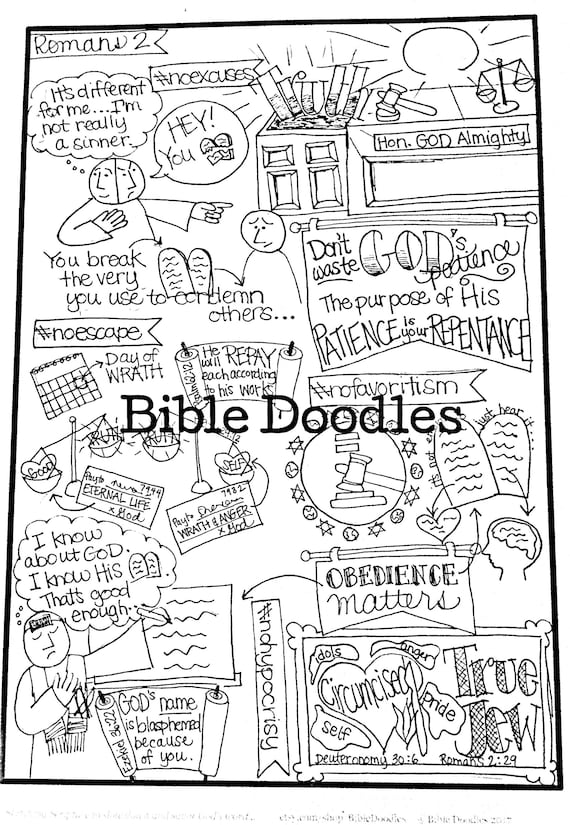 Romans 2
#noexcuses
It's different
for me....I'm
not really
a sinner.
HEY!
You
Hon. GOD Almighty
You break
the very
you use to condemn
others...
Don't
waste GOD's
patience
The purpose of His
PATIENCE is your REPENTANCE
#noescape
Day of
WRATH
He
will REPAY
each according
to his work
#nofavoritism
Bible Doodles
Just hear it...
RUIN
RUIN
Good
SELF
Pay to
ETERNAL LIFE
x God
Pay to
WRATH & ANGER
x God
I know
about GOD.
I know HIS
That's good
enough...
OBEDIENCE
matters
#nohypocrisy
GOD's name
is blasphemed
because
of you.
Ezekiel 36:22
idols
anger
Circumcised
pride
self
True
Jew
Deuteronomy 30:6
Romans 2:29
etsy.com/shop/BibleDoodles
© Bible Doodles 2017